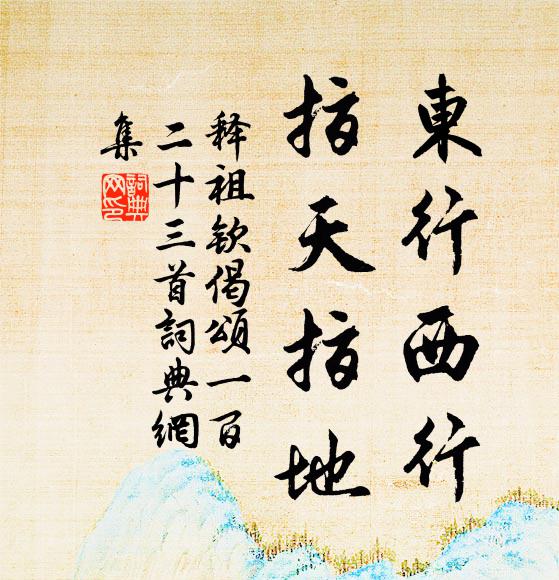 東行西行
指天指地
释祖欽偈頌一百
二十三首詞典網
集
詞典
网印